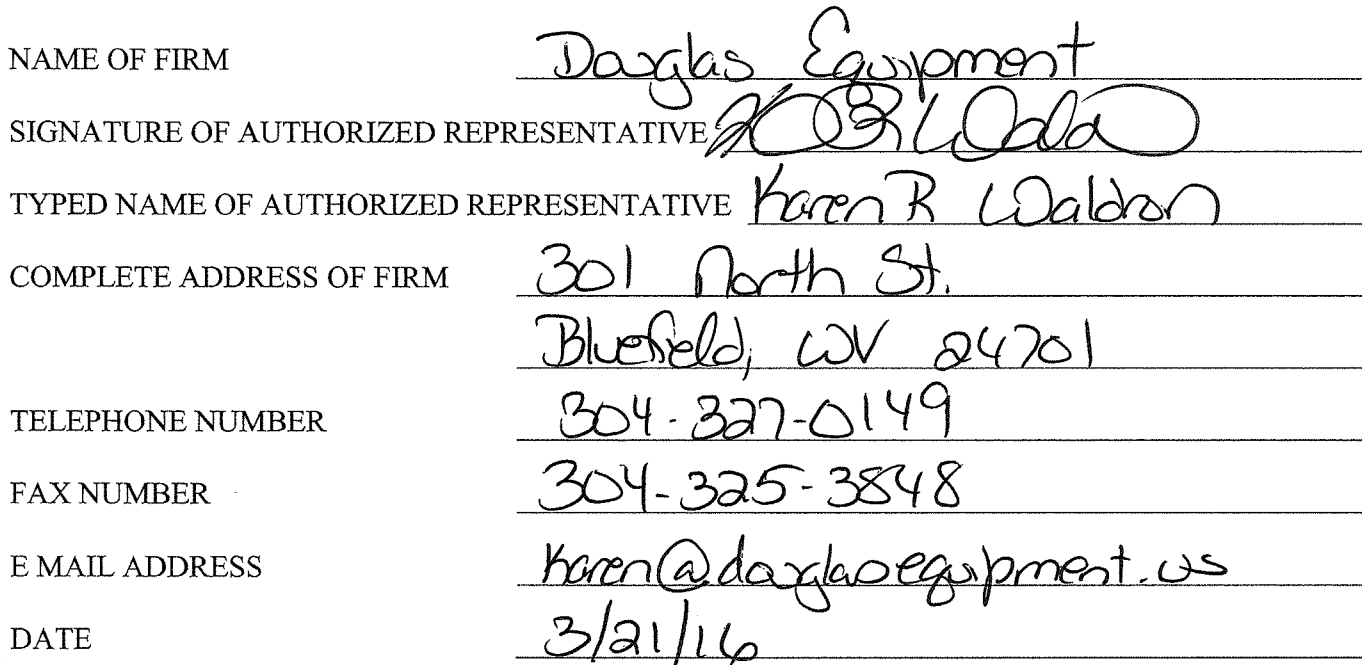 NAME OF FIRM Douglas Equipment
SIGNATURE OF AUTHORIZED REPRESENTATIVE
TYPED NAME OF AUTHORIZED REPRESENTATIVE Karen R Waldron
COMPLETE ADDRESS OF FIRM 301 North St.
Bluefield, WV 24701
TELEPHONE NUMBER 304-327-0149
FAX NUMBER 304-325-3848
E MAIL ADDRESS karen@douglasequipment.us
DATE 3/21/16